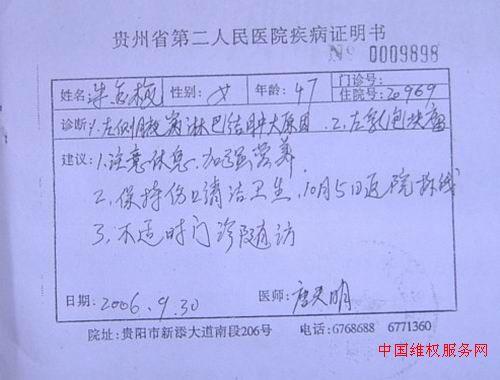 贵州省第二人民医院疾病证明书
№ 0009898
姓名: 性别: 女 年龄: 47 门诊号:
住院号: 20969
诊断: 1. 左侧腋窝淋巴结肿大原因 2. 左乳包块
建议: 1. 注意休息. 加强营养
2. 保持伤口清洁卫生, 10月5日返院拆线
3. 不适时门诊随访
日期: 2006.9.30 医师: 明
院址: 贵阳市新添大道南段206号 电话: 6768688 6771360
中国维权服务网